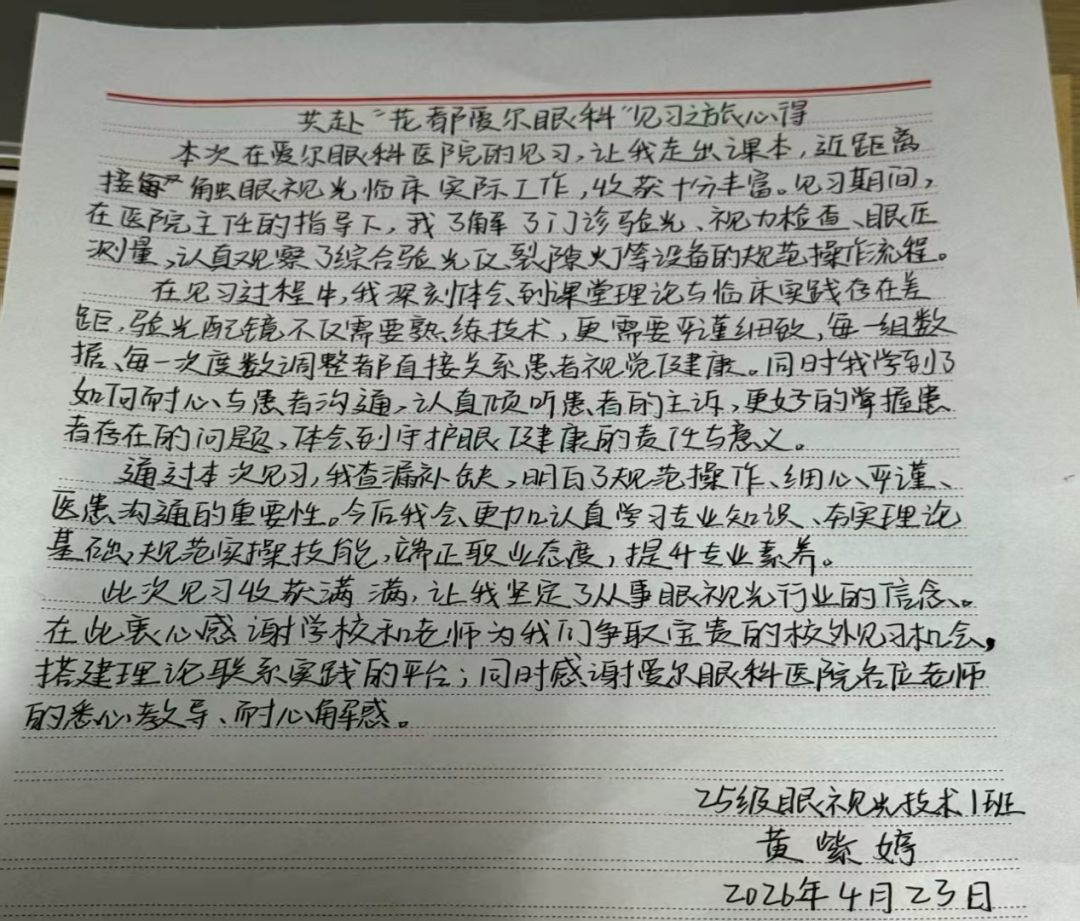 共赴“花都爱尔眼科”见习之旅心得
本次在爱尔眼科医院的见习,让我走出课本,近距离
接触眼视光临床实际工作,收获十分丰富。见习期间,
在医院主任的指导下,我了解了门诊验光、视力检查、眼压
测量,认真观察了综合验光仪裂隙灯等设备的规范操作流程。
在见习过程中,我深刻体会到课堂理论与临床实践存在差
距,验光配镜不仅需要熟练技术,更需要严谨细致,每一组数
据、每一次度数调整都直接关系患者视觉健康。同时我学到了
如何耐心与患者沟通,认真倾听患者的主诉,更好的掌握患
者存在的问题,体会到守护眼健康的责任与意义。
通过本次见习,我查漏补缺,明白了规范操作、细心、严谨、
医患沟通的重要性。今后我会更加认真学习专业知识、夯实理论
基础,规范实操技能,端正职业态度,提升专业素养。
此次见习收获满满,让我坚定了从事眼视光行业的信念。
在此衷心感谢学校和老师为我们争取宝贵的校外见习机会,
搭建理论联系实践的平台;同时感谢爱尔眼科医院各位老师
的悉心教导、耐心解惑。
25级眼视光技术1班
黄紫婷
2026年4月23日